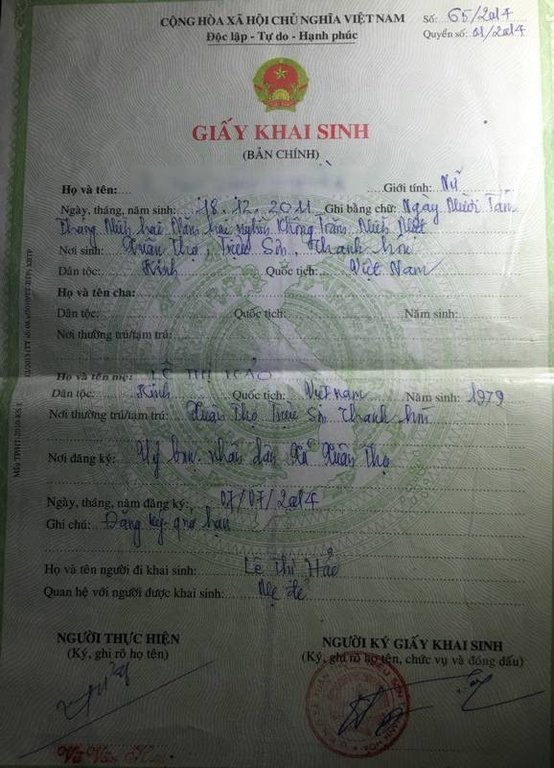 CỘNG HÒA XÃ HỘI CHỦ NGHĨA VIỆT NAM
Độc lập - Tự do - Hạnh phúc
Số: 65/2014
Quyển số: 01/2014
GIẤY KHAI SINH
(BẢN CHÍNH)
Họ và tên: Giới tính: Nữ
Ngày, tháng, năm sinh: 18.12.2011 Ghi bằng chữ: Ngày Mười Tám
Tháng Mười hai Năm hai nghìn Không Trăm Mười Một
Nơi sinh: Xuân Thọ, Triệu Sơn, Thanh hoá
Dân tộc: Kinh Quốc tịch: Việt Nam
Họ và tên cha:
Dân tộc: Quốc tịch: Năm sinh:
Nơi thường trú/tạm trú:
Họ và tên mẹ: LÊ THỊ
Dân tộc: Kinh Quốc tịch: Việt Nam Năm sinh: 1979
Nơi thường trú/tạm trú: Xuân Thọ Triệu Sơn Thanh hoá
Nơi đăng ký: Uỷ ban nhân dân Xã Xuân Thọ
Ngày, tháng, năm đăng ký: 07/07/2014
Ghi chú: Đăng ký quá hạn
Họ và tên người đi khai sinh: Lê Thị
Quan hệ với người được khai sinh: Mẹ đẻ
NGƯỜI THỰC HIỆN
(Ký, ghi rõ họ tên)
NGƯỜI KÝ GIẤY KHAI SINH
(Ký, ghi rõ họ tên, chức vụ và đóng dấu)
Vũ Văn